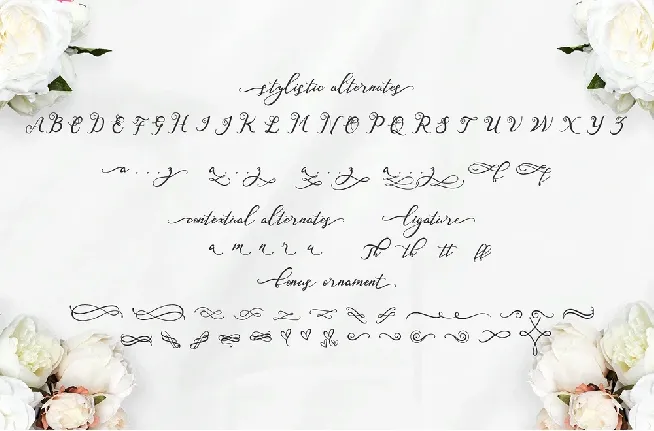 stylistic alternates
A B C D E F G H I J K L M N O P Q R S T U V W X Y Z
a . . . z a . . z a . . z a . . z
contextual alternates ligature
a m n r u Th th tt ff
bonus ornament